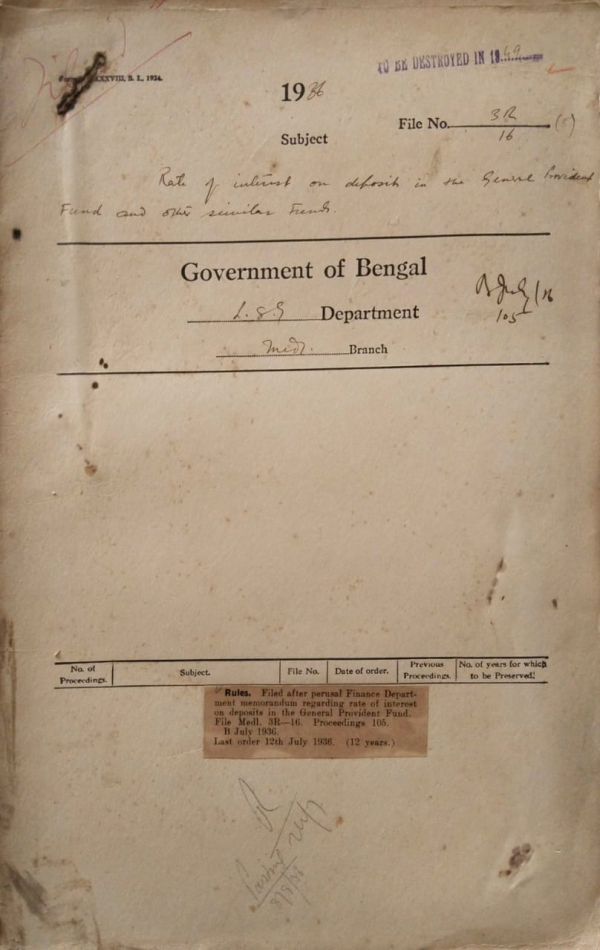 XXXVIII, S. I., 1934.
TO BE DESTROYED IN 1949
1936
File No. 3R/16
Subject
Rate of interest on deposits in the General Provident
Fund and other similar Funds.
Government of Bengal
L. S. G Department
Medl. Branch
B July/16
105
No. of Proceedings. Subject. File No. Date of order. Previous Proceedings. No. of years for which to be Preserved.
Rules. Filed after perusal Finance Depart-
ment memorandum regarding rate of interest
on deposits in the General Provident Fund.
File Medl. 3R—16. Proceedings 105.
B July 1936.
Last order 12th July 1936. (12 years.)